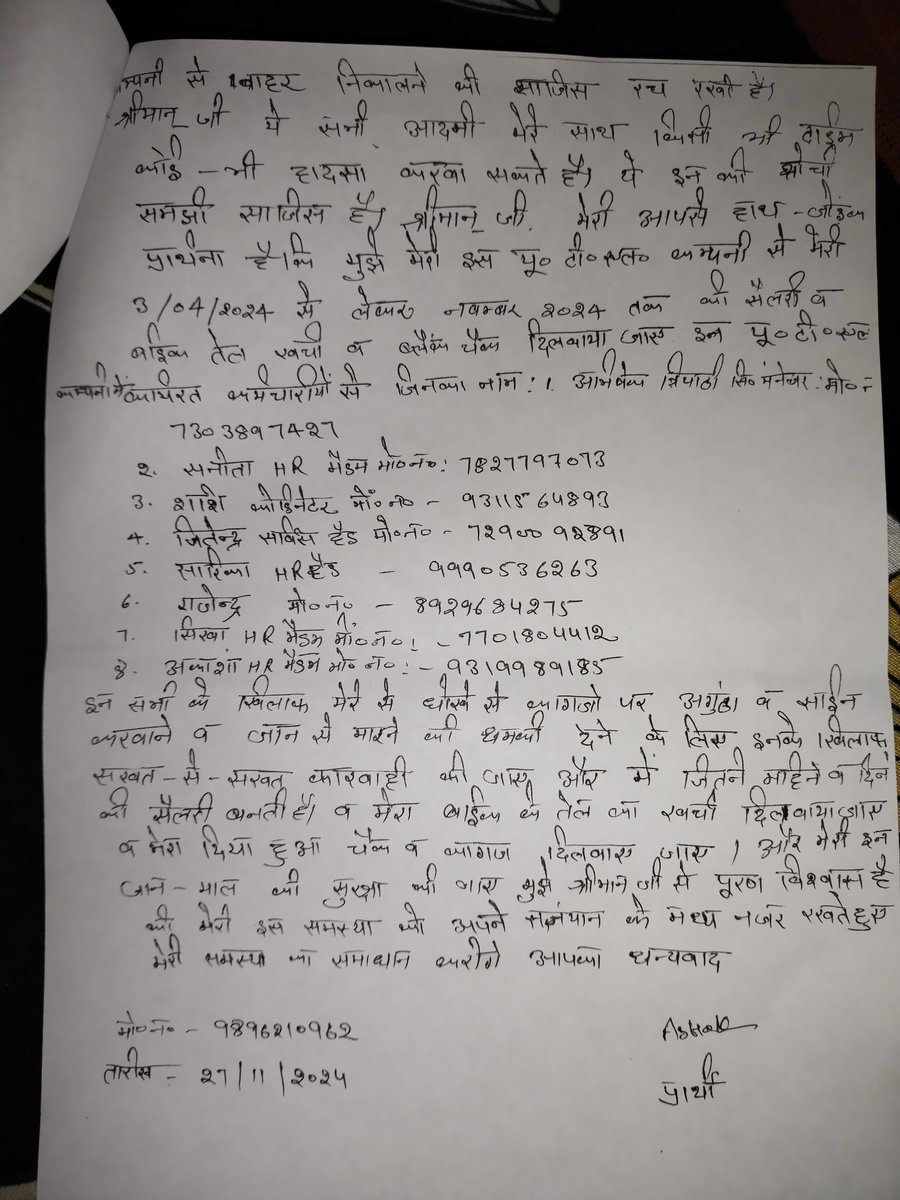 म्पनी से बाहर निकालने की साजिस रच रखी है।
श्रीमान् जी ये सभी आदमी मेरे साथ किसी भी टाईम
कोई - भी हादसा करवा सकते है। ये इन की सोची
समझी साजिस है। श्रीमान् जी. मेरी आपसे हाथ - जोड़कर
प्रार्थना है कि मुझे मेरी इस यू० टी० एल० कम्पनी से मेरी
3/04/2024 से लेकर नवम्बर 2024 तक की सैलरी व
बाईक तेल खर्चा व ब्लैंक चैक दिलवाया जाए इन यू० टी० एल
कम्पनी में कार्यरत कर्मचारीयों से जिनका नाम : 1. अभिषेक त्रिपाठी सि० मनेजर : मो० न
7303897427
2. सनीता HR मैडम मो० न० : 7827797073
3. शशि कोडिनेटर मो० न० - 9311564893
4. जितेन्द्र सर्विस हैड मो० न० - 7290092891
5. सारिका HR हैड - 9990536263
6. राजेन्द्र मो० न० - 8929684275
7. सिखा HR मैडम मो० न० : - 7701804412
8. अकाशां HR मैडम मो० न० : - 9319989185
इन सभी के खिलाफ मेरे से धोखे से कागजो पर अगुंठा व साईन
करवाने व जान से मारने की धमकी देने के लिए इनके खिलाफ
सखत - से - सखत कारवाही की जाए और में जितने महिने व दिन
की सैलरी बनती है। व मेरा बाईक के तेल का खर्चा दिलवाया जाए
व मेरा दिया हुआ चैक व कागज दिलवाए जाए । और मेरी इन
जान - माल की सुरक्षा की जाए मुझे श्रीमान जी से पूरण विश्वास है
की मेरी इस समस्या को अपने संनंयान के मध्य नजर रखते हुए
मेरी समस्या का समाधान करोगे आपका धन्यवाद
मो० न० - 9896210962
Ashok
तारीख - 27/11/2024
प्रार्थी